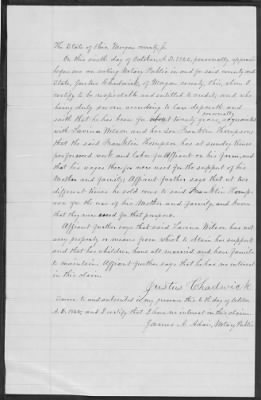 The State of Ohio, Morgan county, ss
On this ninth day of October A.D. 1866, personally, appeared
before me an acting Notary Public in and for said county and
State, Justus Chadwick, of Morgan county, Ohio, whom I
certify to be respectable and entitled to credit, and who
being duly sworn according to law deposeth and
saith that he has been for about twenty years, personally acquainted
with Lavina Wilson and her Son Franklin Thompson
that the said Franklin Thompson has at sundry times
performed work and labor for Affiant on his farm, and
that his wages therefor were used for the support of his
Mother and family, Affiant further says that at two
different times he sold cows to said Franklin Thomp-
son for the use of his Mother and family, and knows
that they were used for that purpose.
Affiant further says that said Lavina Wilson has not
any property or means from which to draw her support
and that her children have all married and have families
to maintain. Affiant further says that he has no interest
in this claim
Justus Chadwick
Sworn to and subscribed in my presence this 9th day of October
A.D. 1866, and I certify that I have no interest in this claim.
James A. Adair, Notary Public